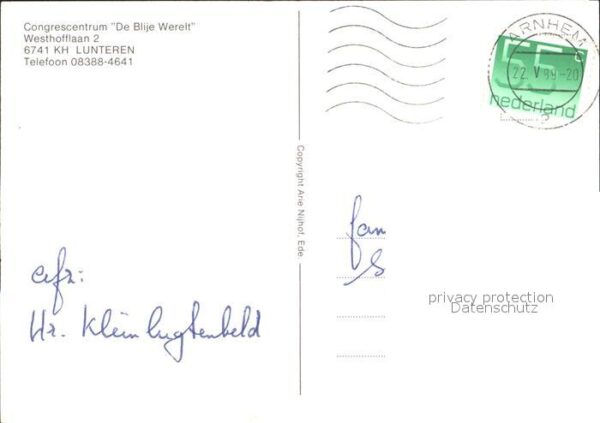 Congrescentrum "De Blije Werelt"
Westhofflaan 2
6741 KH LUNTEREN
Telefoon 08388-4641
ARNHEM
22 V 89-20
55
nederland
Copyright Arie Nijhof, Ede.
fam
S
privacy protection
Datenschutz
afz:
Hr. Kleinlugtenbeld